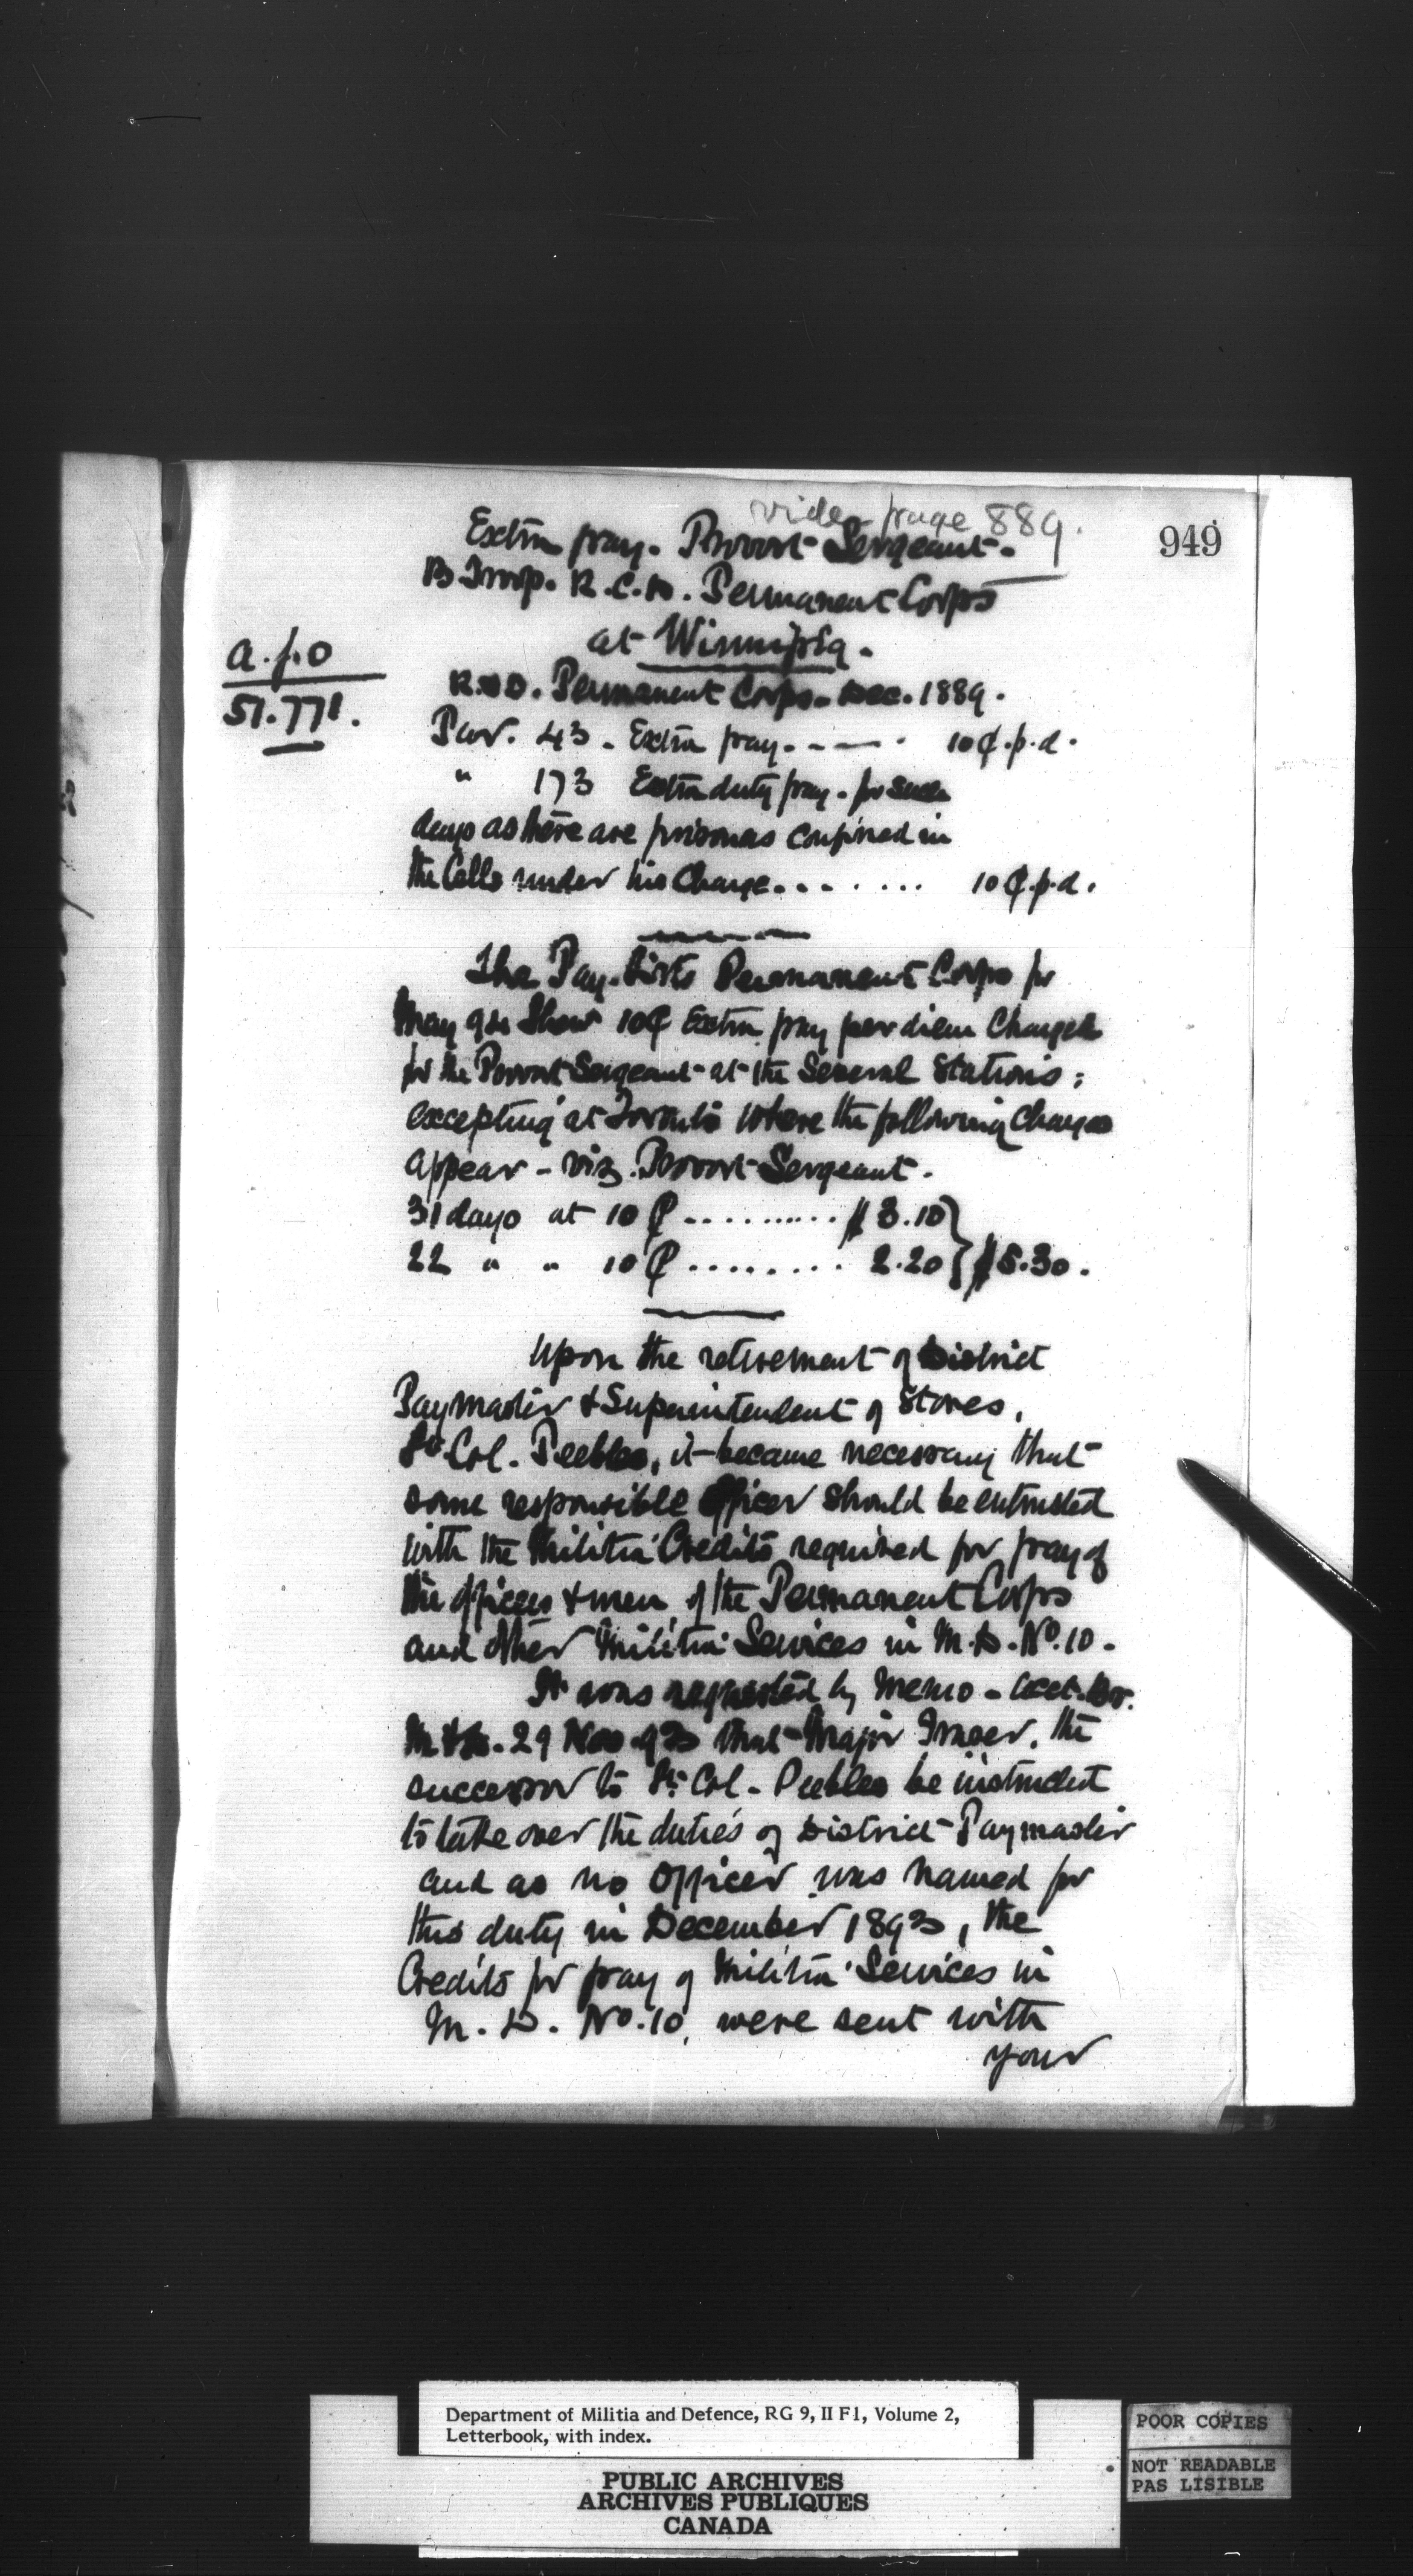 vide page 889.
949
Extra pay. Provost Sergeant.
B Troop. R.C.D. Permanent Corps
at Winnipeg.
a.f.o
51.771.
R.&O. Permanent Corps. Dec. 1889.
Par. 43. Extra pay. - - - . 10¢.p.d.
" 173 Extra duty pay. for such
days as there are prisoners confined in
the Cells under his Charge........ 10¢.p.d.
The Pay-Lists Permanent Corps for
May 94 Show 10¢ Extra pay per diem Charged
for the Provost Sergeant at the Several Stations;
excepting at Toronto where the following Charges
appear - viz. Provost Sergeant.
31 days at 10¢.......... $3.10
22 " " 10¢......... 2.20 } $5.30.
Upon the retirement of District
Paymaster & Superintendent of Stores,
Lt Col. Peebles, it became necessary that
some responsible Officer should be entrusted
with the Militia Credits required for pay of
the officers & men of the Permanent Corps
and other Militia Services in M.D. No. 10.
It was requested by Memo - Acct. Br.
M&D. 29 Nov. 93 that Major Traser, the
successor to Lt. Col. Peebles be instructed
to take over the duties of District Paymaster
and as no Officer was named for
this duty in December 1893, the
Credits for pay of Militia Services in
M. D. No. 10, were sent with
your
Department of Militia and Defence, RG 9, II F1, Volume 2,
Letterbook, with index.
PUBLIC ARCHIVES
ARCHIVES PUBLIQUES
CANADA
POOR COPIES
NOT READABLE
PAS LISIBLE